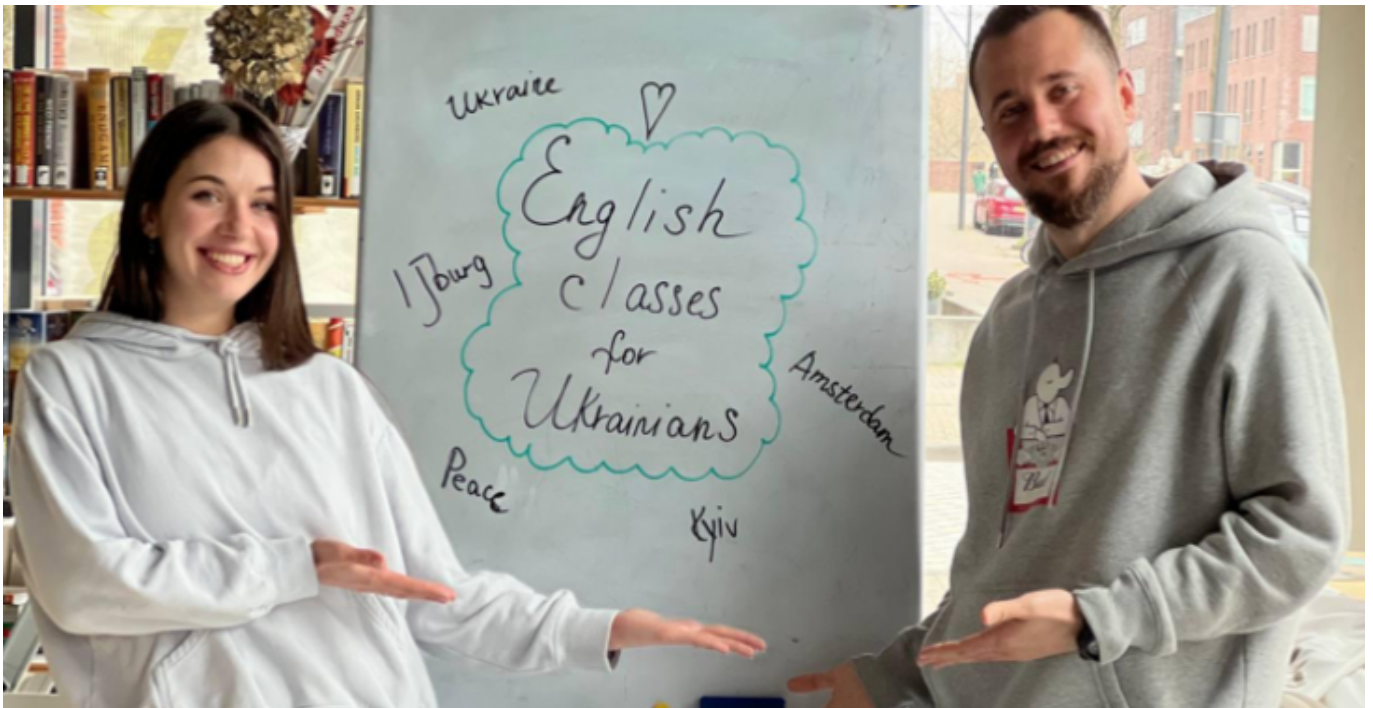 Ukraine
English
classes
for
Ukrainians
IJburg
Amsterdam
Peace
Kyiv